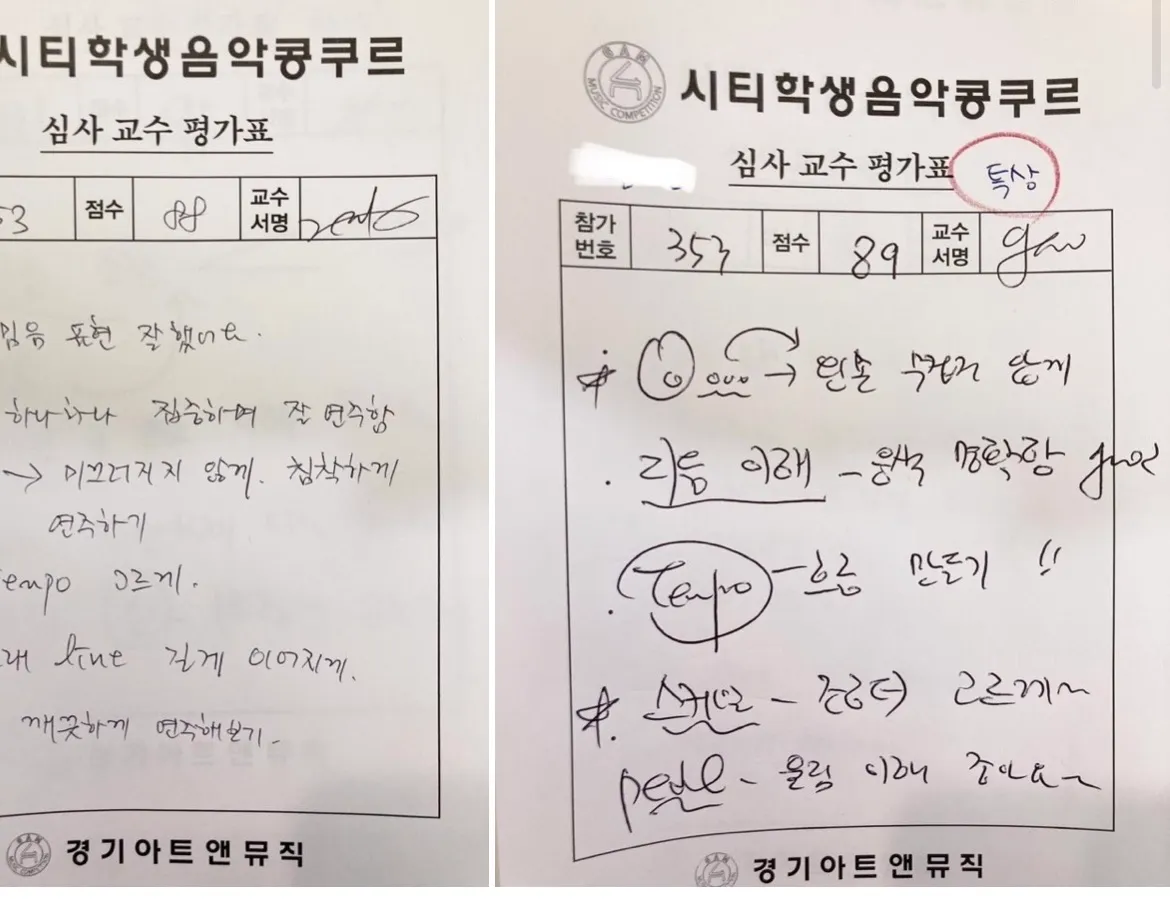 시티학생음악콩쿠르
심사 교수 평가표
53 점수 88 교수 서명
표현 잘했어요.
하나하나 집중하며 잘 연주함
→ 미끄러지지 않게. 침착하게
연주하기
Tempo 고르게.
line 길게 이어지게.
깨끗하게 연주해보기.
경기아트앤뮤직
MUSIC COMPETITION
시티학생음악콩쿠르
심사 교수 평가표 특상
참가 번호 353 점수 89 교수 서명
→ 왼손 무겁지 않게
· 리듬 이해 - 음색 명확함
· Tempo - 흐름 만들기 !!
스케일 - 조금 더 고르게~
pedal - 울림 이해 좋아요~
경기아트앤뮤직